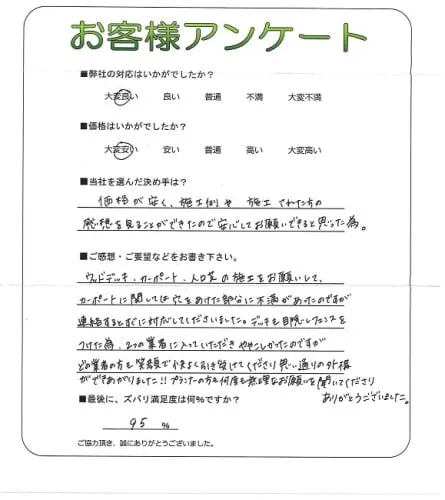 お客様アンケート
■弊社の対応はいかがでしたか?
大変良い 良い 普通 不満 大変不満
■価格はいかがでしたか?
大変安い 安い 普通 高い 大変高い
■当社を選んだ決め手は?
価格が安く、施工例や 施工された方の
感想を見ることができたので安心してお願いできると思った為。
■ご感想・ご要望などをお書き下さい。
ウッドデッキ・カーポート・人工芝の施工をお願いして、
カーポートに関しては穴をあけた部分に不満があったのですが
連絡するとすぐに対応してくださいました。デッキも目隠しフェンスを
つけた為、2つの業者に入っていただき ややこしかったのですが
どの業者の方も笑顔で快よく引き受けてくださり思い通りの外構
ができあがりました!!プランナーの方も何度も無理なお願いを聞いてくださり
ありがとうございました。
■最後に、ズバリ満足度は何%ですか?
95 %
ご協力頂き、誠にありがとうございました。